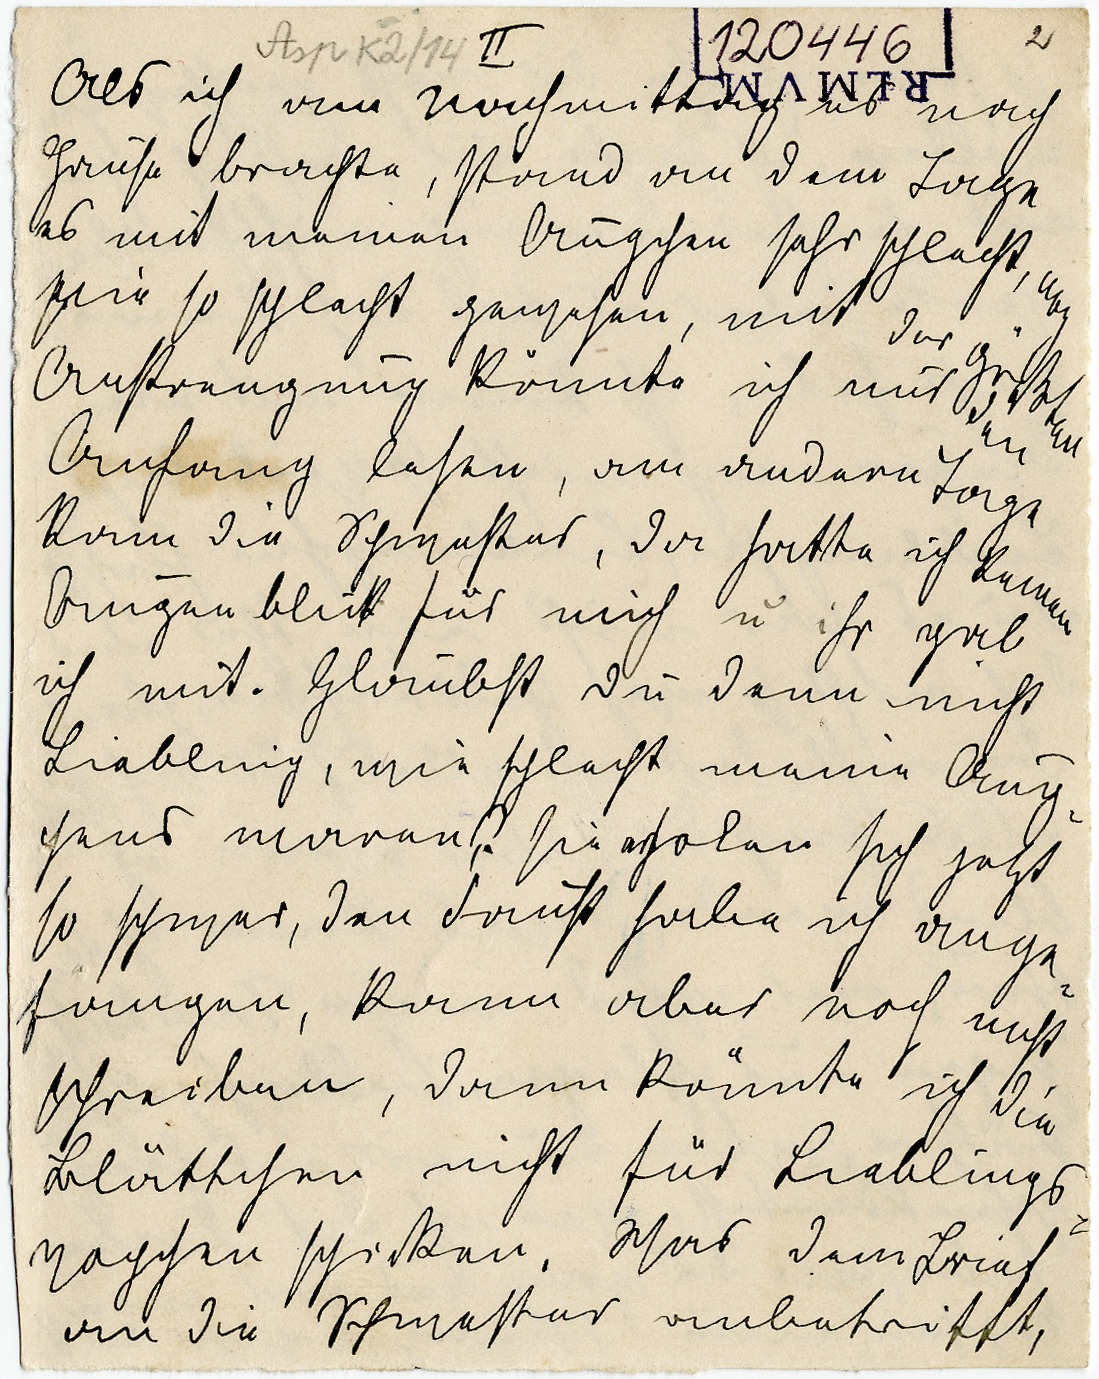 Asp K2/14 II 120446 2
RLMVM
Als ich am Nachmittag es nach
Hause brachte, stand an dem Tage
es mit meinen Äugchen sehr schlecht,
nie so schlecht gewesen, mit der größten
Anstrengung konnte ich nur den
Anfang lesen, am andern Tage
kam die Schwester, da hatte ich keinen
Augenblick für mich u ihr gab
ich mit. Glaubst du denn nicht
Liebling, wie schlecht meine Äug-
chens waren? sie erholen sich jetzt
so schwer, den Faust habe ich ange-
fangen, kann aber noch nicht
schreiben, dann könnte ich die
Blättchen nicht für Lieblings-
schicken. Was dem Brief
an die Schwester anbetrifft,